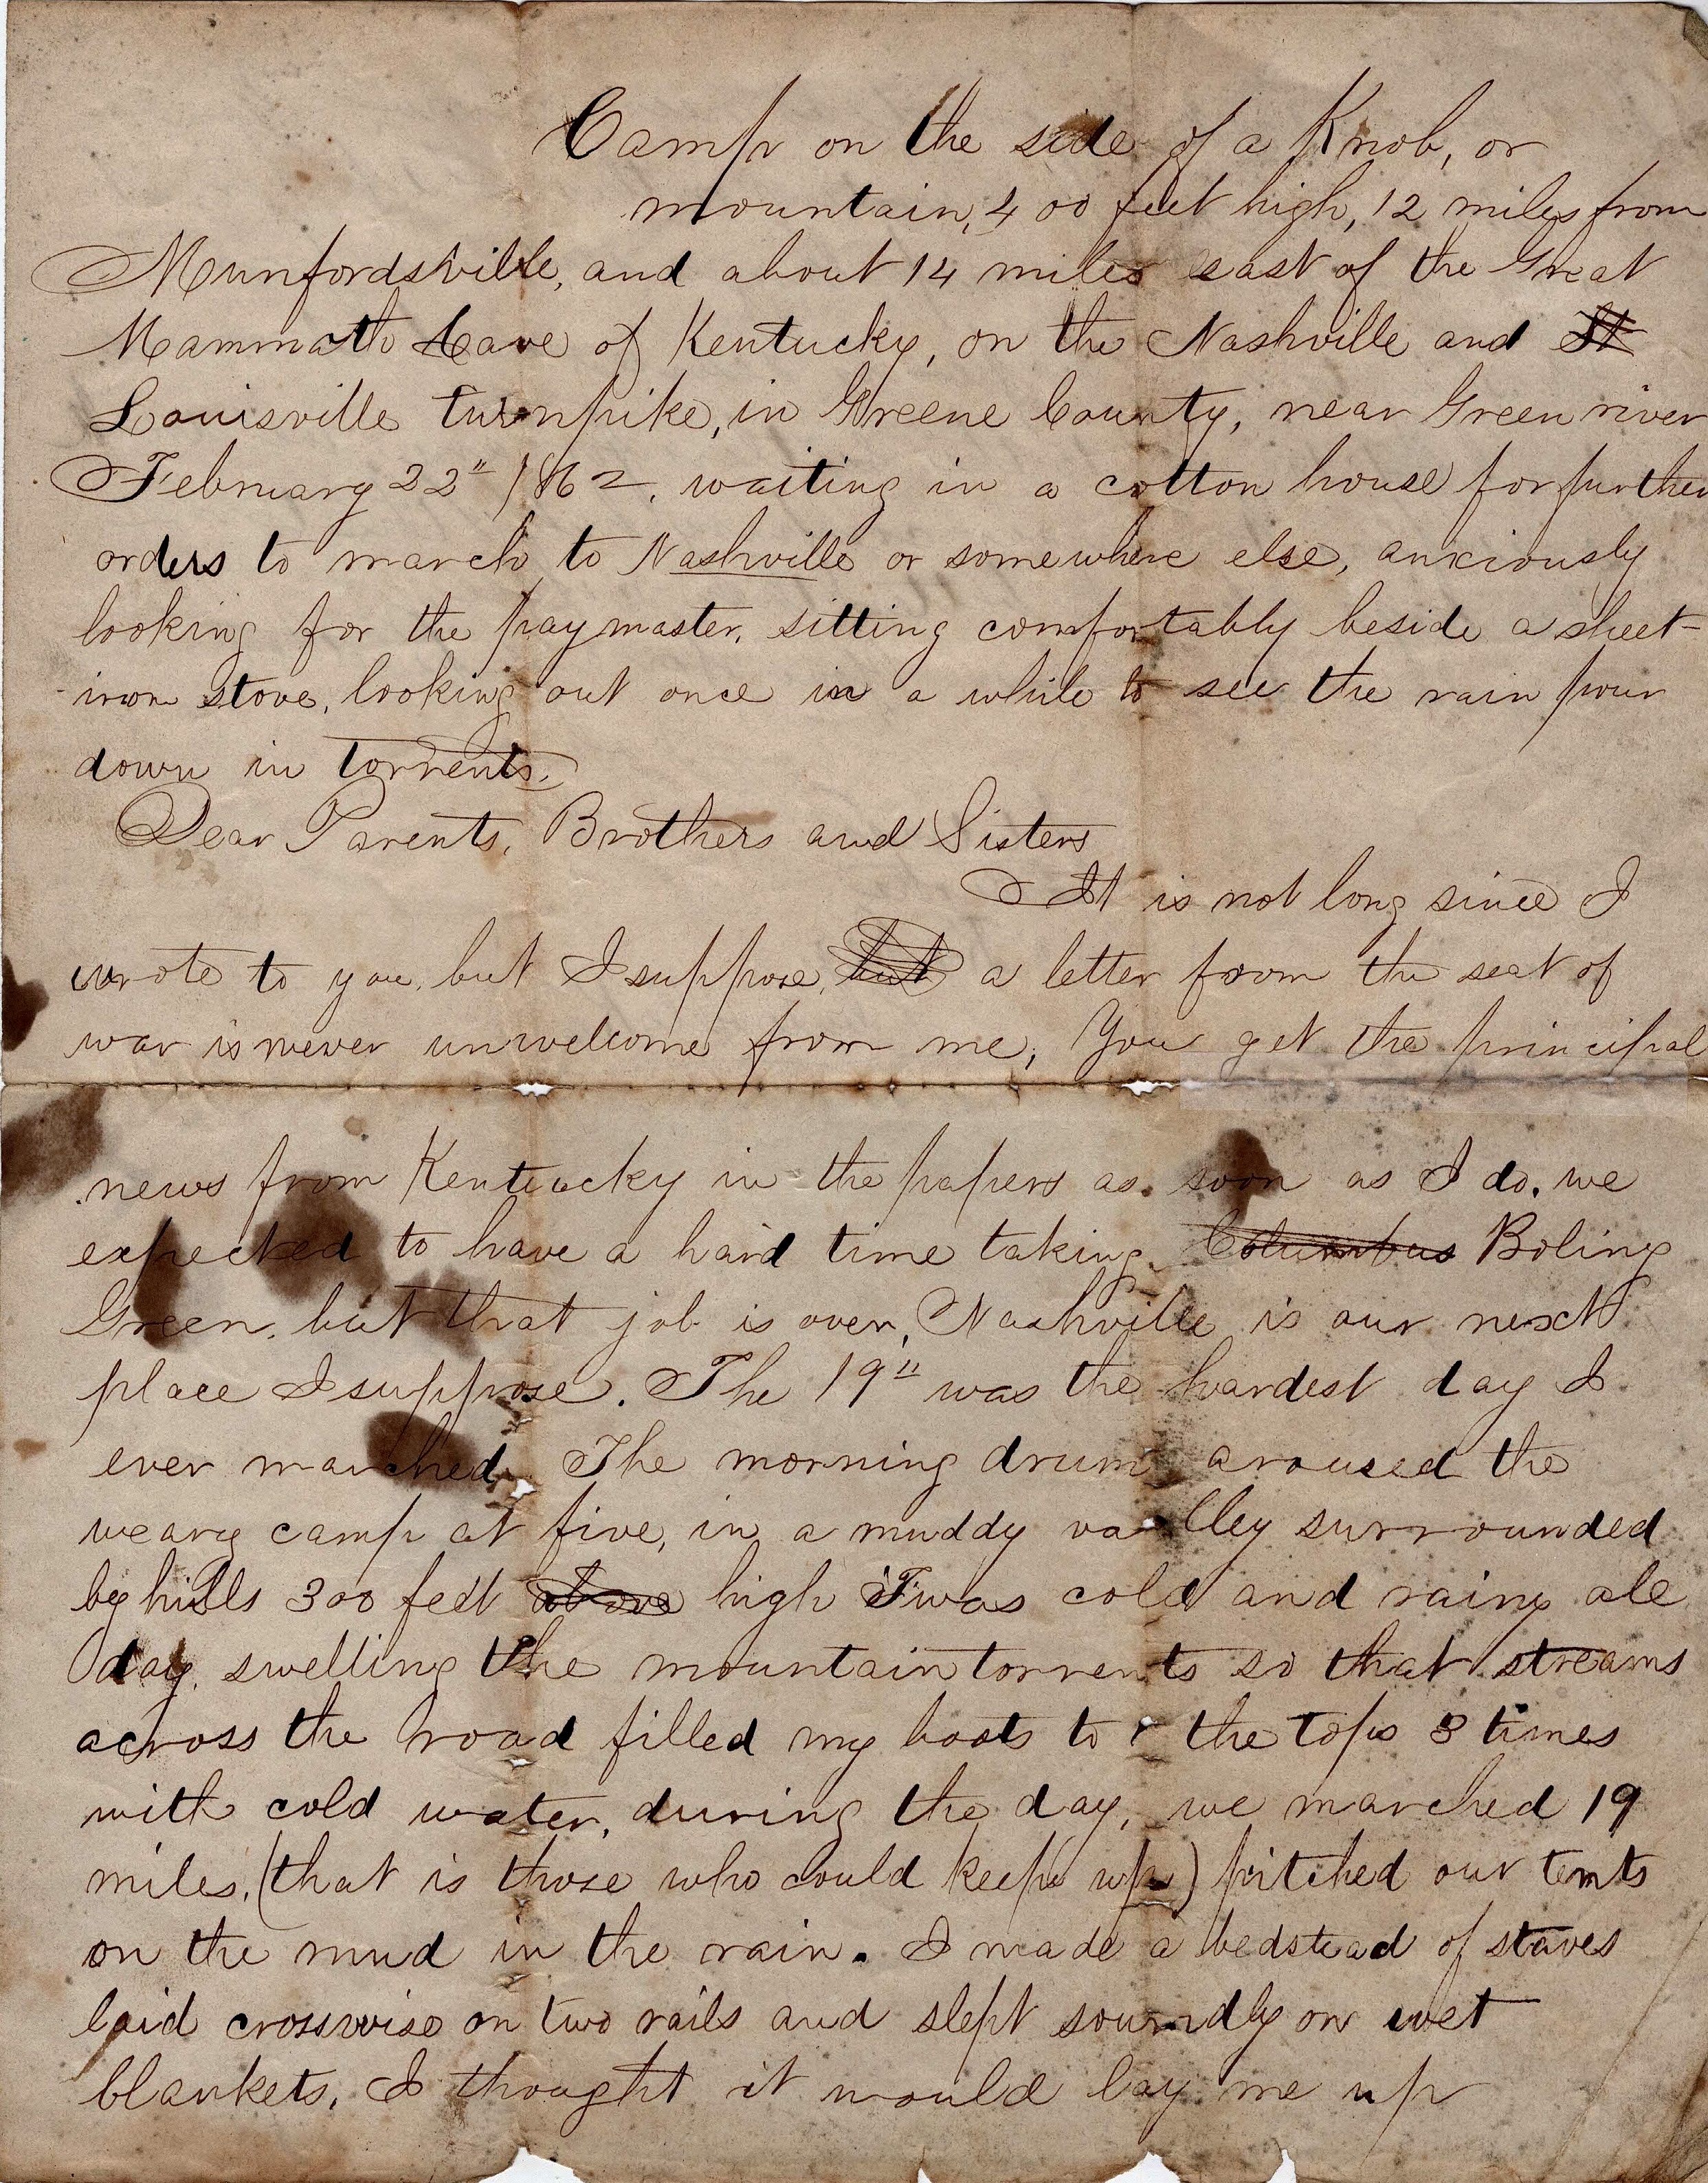 Camp on the side of a Knob, or
mountain, 400 feet high, 12 miles from
Munfordsville, and about 14 miles east of the Great
Mammoth Cave of Kentucky, on the Nashville and St
Louisville turnpike, in Greene County, near Green river
February 22" /62, waiting in a cotton house for further
orders to march to Nashville or somewhere else, anxiously
looking for the paymaster, sitting comfortably beside a sheet-
iron stove, looking out once in a while to see the rain pour
down in torrents.
Dear Parents, Brothers and Sisters
It is not long since I
wrote to you, but I suppose, but a letter from the seat of
war is never unwelcome from me, You get the principal
news from Kentucky in the papers as soon as I do. we
expected to have a hard time taking Columbus Boling
Green, but that job is over, Nashville is our next
place I suppose. The 19" was the hardest day I
ever marched. The morning drum aroused the
weary camp at five, in a muddy valley surrounded
by hills 300 feet above high 'Twas cold and rainy all
day, swelling the mountain torrents so that streams
across the road filled my boots to the tops 3 times
with cold water, during the day, we marched 19
miles, (that is those who could keep up) pitched our tents
on the mud in the rain. I made a bedstead of staves
laid crosswise on two rails and slept soundly on wet
blankets, I thought it would lay me up